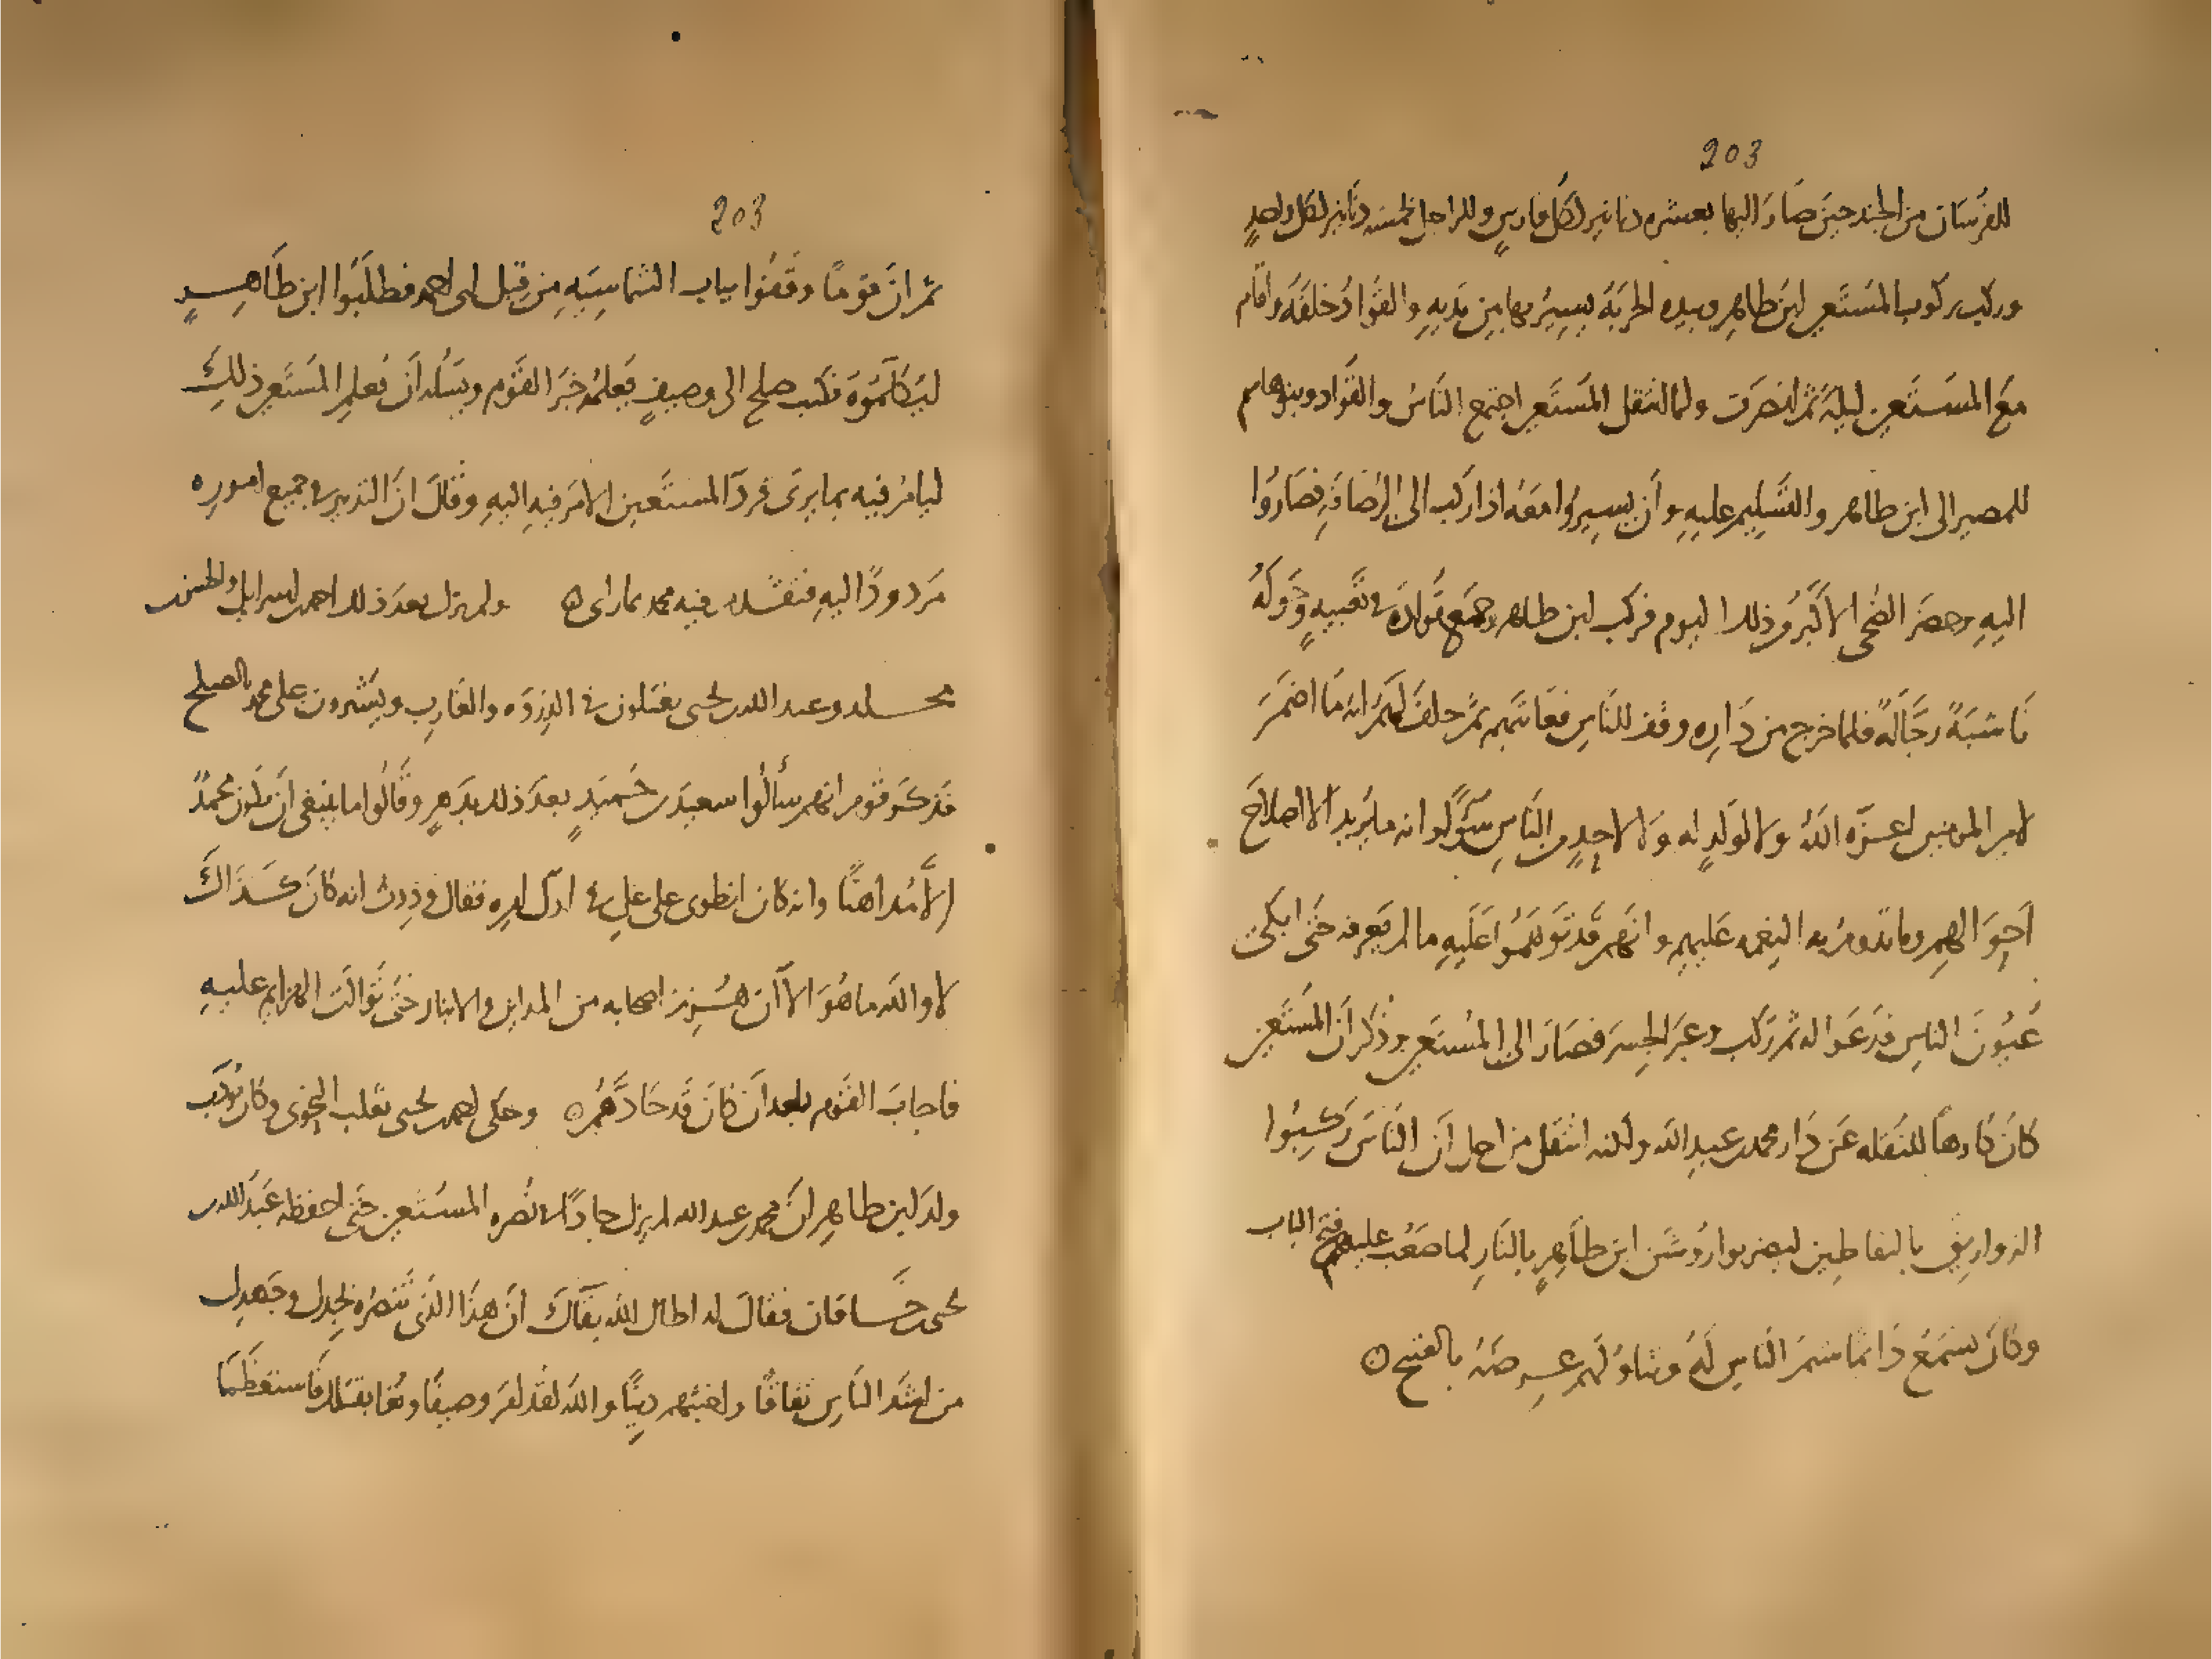 203
للفرسان من الجند حين صار اليها بعشره دنانير لكل فارس وللراجل خمسه دنانير لكل واحد
وركب بركوب المستعين ابن طاهر وبيده الحربة يسير بها بين يديه والقواد خلفه واقام
مع المستعين ليلة ثم انصرف ولما انتقل المستعين اجتمع الناس والقواد وبنو هاشم
للمصير الى ابن طاهر والتسليم عليه وأن يسيروا معه اذا ركب الى الرصافة فصاروا
اليه وحضر الضحى الاكبر من ذلك اليوم فركب ابن طاهر وجميع قواده في تعبيه وحوله
ناشبة رجالة فلما خرج من داره وقف للناس فعاتبهم ثم حلف لهم انه ما اضمر
لامير المومنين اعزه الله ولا لولي له ولا لاحد من الناس سوءا وانه ما يريد الا اصلاح
احوالهم وما تدوم به النعمه عليهم وانهم قد توهموا عليه ما لم يعرفه حتى ابكى
عيون الناس فدعوا له ثم ركب وعبر الجسر فصار الى المستعين وذكر ان المستعين
كان كارها للنقله عن دار محمد بن عبد الله ولكنه انتقل من اجل أن الناس ركبوا
الزواريق بالنفاطين ليضربوا روشن ابن طاهر بالنار لما صعب عليهم فتح الباب
وكان يسمع ذا ثما شمر الناس له عرصه بالفتح
203
ثم ان قوما وقفوا بباب الشماسيه من قبل ابى احمد فطلبوا ابن طاهر
ليكلموه فكتب صلح الى وصيف يعلمه خبر القوم ويسله أن يعلم المستعين ذلك
ليامر فيه بما يرى فرد المستعين الامر فيه اليه وقال ان التدبير في جميع اموره
مردودا اليه فتقدم فيه محمد بما راى ولم يزل بعد ذلك احمد بن اسرايل والحسن بن
مخلد وعبد الله بن يحيى يفتلون في الذروه والغارب ويشيرون على محمد بالصلح
فذكر قوم انهم سألوا سعيد بن حميد بعد ذلك بدهر وقالوا ما ينبغي ان يكون محمد
إلا مداهنا وانه كان انطوى على غل في اول امره فقال وددت انه كان كذاك
لا والله ما هو الا أن هزم اصحابه من المداين والانبار حتى توالت الهزايم عليه
فاجاب القوم بعد أن كان قد حادهم وحكى احمد بن يحيى ثعلب النحوى وكان مودب
ولد ابن طاهر أن محمد بن عبد الله لم يزل جادا في نصره المستعين حتى احفظه عبد الله بن
يحيى بن خاقان فقال له اطال الله بقاك ان هذا الذى تنصره بجدك وجهدك
من اشد الناس نفاقا واخبثهم دينا والله لقد امر وصيفا وبغا بقتلك فاستعظما